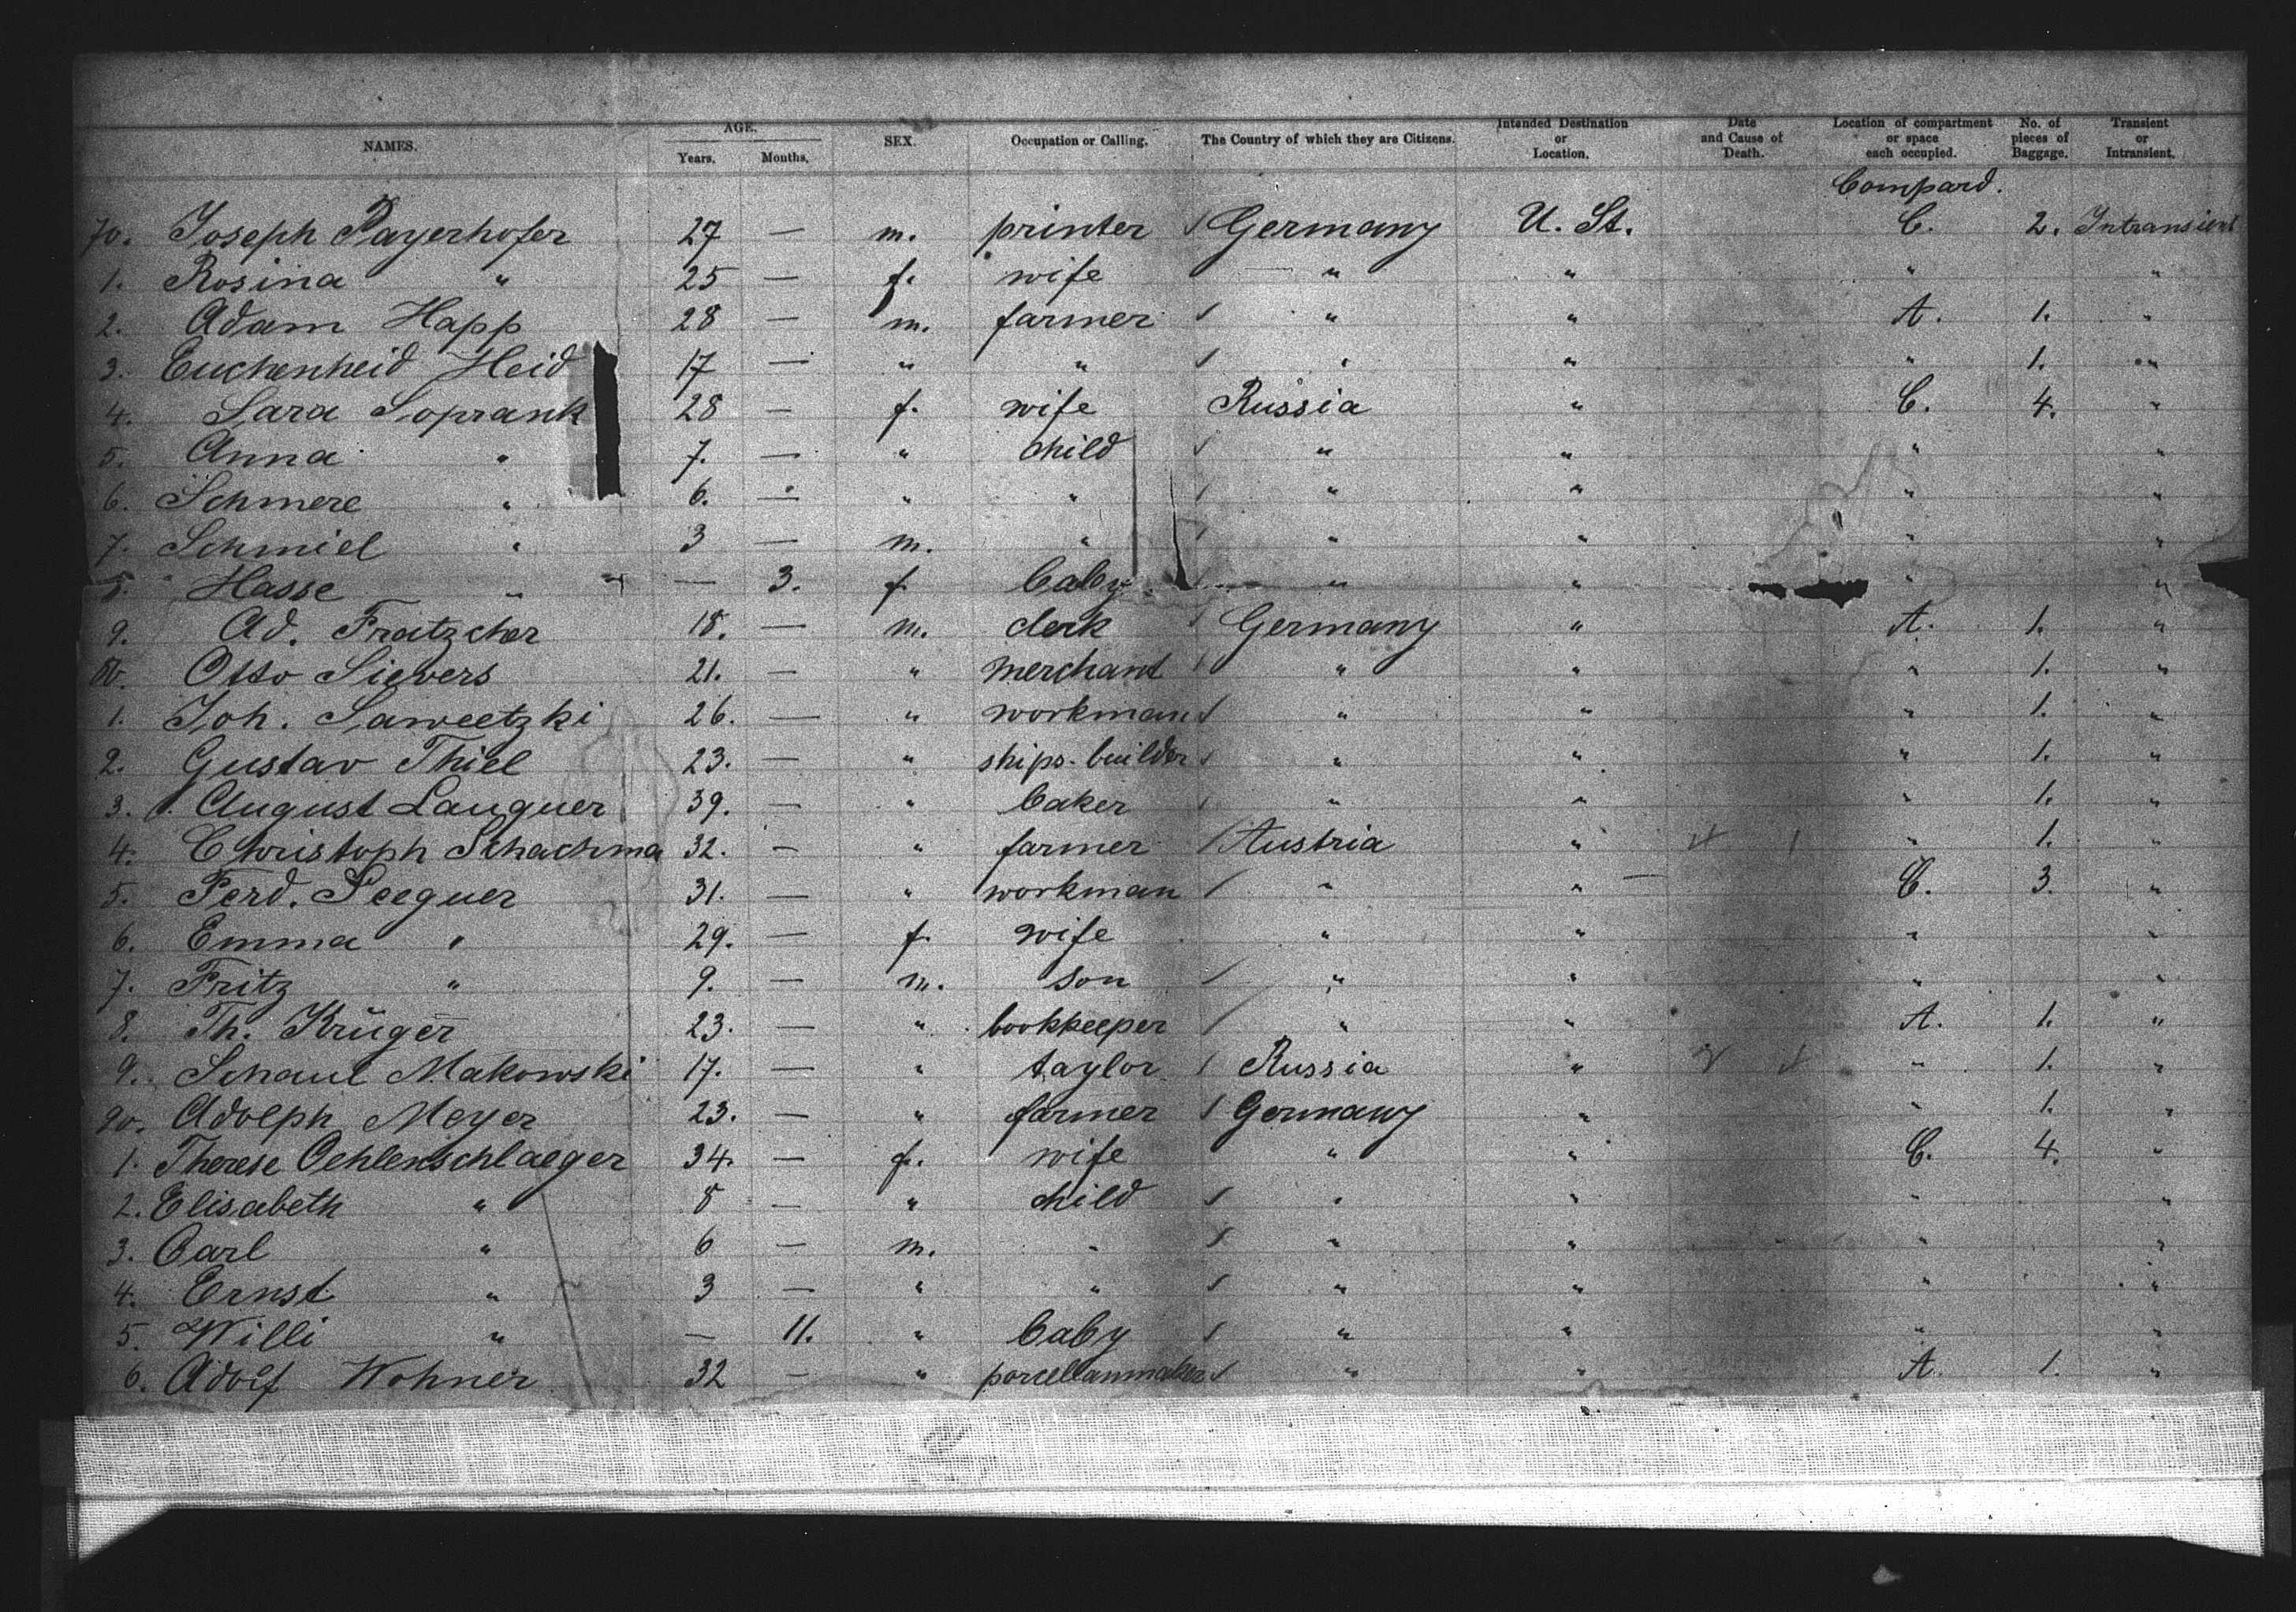 NAMES. AGE. Years. Months. SEX. Occupation or Calling. The Country of which they are Citizens. Intended Destination or Location. Date and Cause of Death. Location of compartment or space each occupied. No. of pieces of Baggage. Transient or Intransient.
Compard.
70. Joseph Payerhofer 27 — m. printer Germany U. St. C. 2. Intransient
1. Rosina " 25 — f. wife " " " "
2. Adam Happ 28 — m. farmer " " A. 1. "
3. Euchenheid Heid 17 — " " " " " 1. "
4. Sara Soprank 28 — f. wife Russia " C. 4. "
5. Anna " 7. — " child " " " "
6. Schmere " 6. — " " " " " "
7. Schmiel " 3 — m. " " " " "
8. Hasse " — 3. f. baby " " " "
9. Ad. Fratzcher 18. — m. clerk Germany " A. 1. "
80. Otto Sievers 21. — " merchant " " " 1. "
1. Joh. Saweetzki 26. — " workman " " " 1. "
2. Gustav Thiel 23. — " ships-builder " " " 1. "
3. August Lauguer 39. — " baker " " " 1. "
4. Christoph Schachma 32. — " farmer Austria " " 1. "
5. Ferd. Seeguer 31. — " workman " " C. 3. "
6. Emma " 29. — f. wife " " " "
7. Fritz " 9. — m. son " " " "
8. Th. Krüger 23. — " bookkeeper " " A. 1. "
9. Schaul Makowski 17. — " taylor Russia " " 1. "
90. Adolph Meyer 23. — " farmer Germany " " 1. "
1. Therese Oehlenschlaeger 34. — f. wife " " C. 4. "
2. Elisabeth " 8 — " child " " " "
3. Carl " 6 — m. " " " " "
4. Ernst " 3 — " " " " " "
5. Willi " — 11. " baby " " " "
6. Adolf Wohner 32 — " porcellanmaker " " A. 1. "